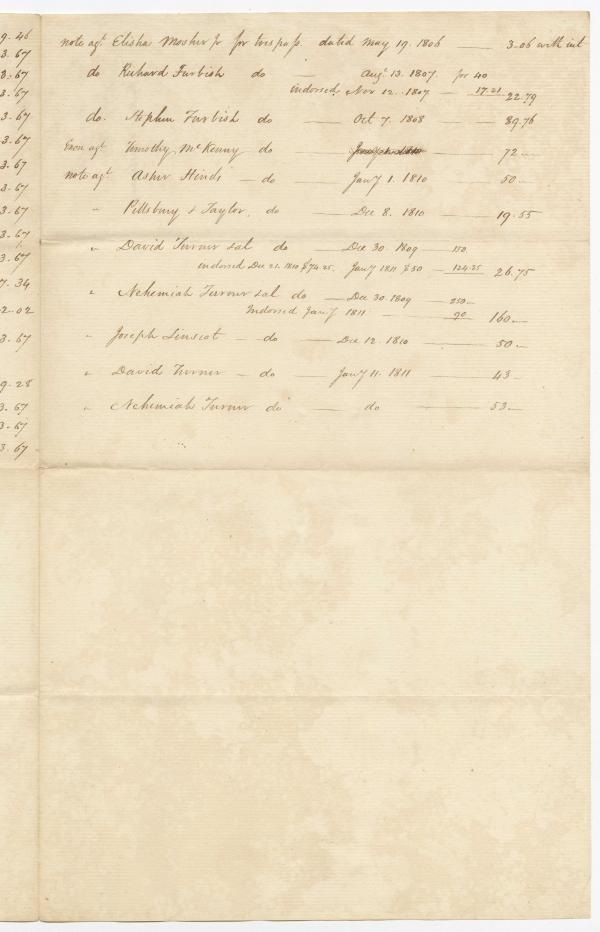 9.46
3.67
3.67
3.67
3.67
3.67
3.67
3.67
3.67
3.67
3.67
7.34
2.02
3.67
9.28
3.67
3.67
3.67
note agt. Elisha Mosher Jr for trespass. dated May 19. 1806 — 3.06 with int
do Richard Furbish do — Augt 13. 1807. for 40
indorsed, Nov 12. 1807 — 17.21 22.79
do. Stephen Furbish do — Oct 7. 1808 — 89.76
Exon agt Timothy McKenny do — — 72 —
note agt. Asher Hinds — do — Jany 1. 1810 — 50 —
" Pillsbury & Taylor, do — Dec 8. 1810 — 19.55
" David Turner & al do — Dec 30. 1809 — 150
indorsed Dec 21. 1810 $74.25. Jany 1811 $50 — 124.25 26.75
" Nehemiah Turner & al do — Dec 30. 1809 — 250 —
Indorsed Jany 1811 — 90 160 —
" Joseph Linscot — do — Dec 12. 1810 — 50 —
" David Turner — do — Jany 11. 1811 — 43 —
" Nehemiah Turner do — do — 53 —